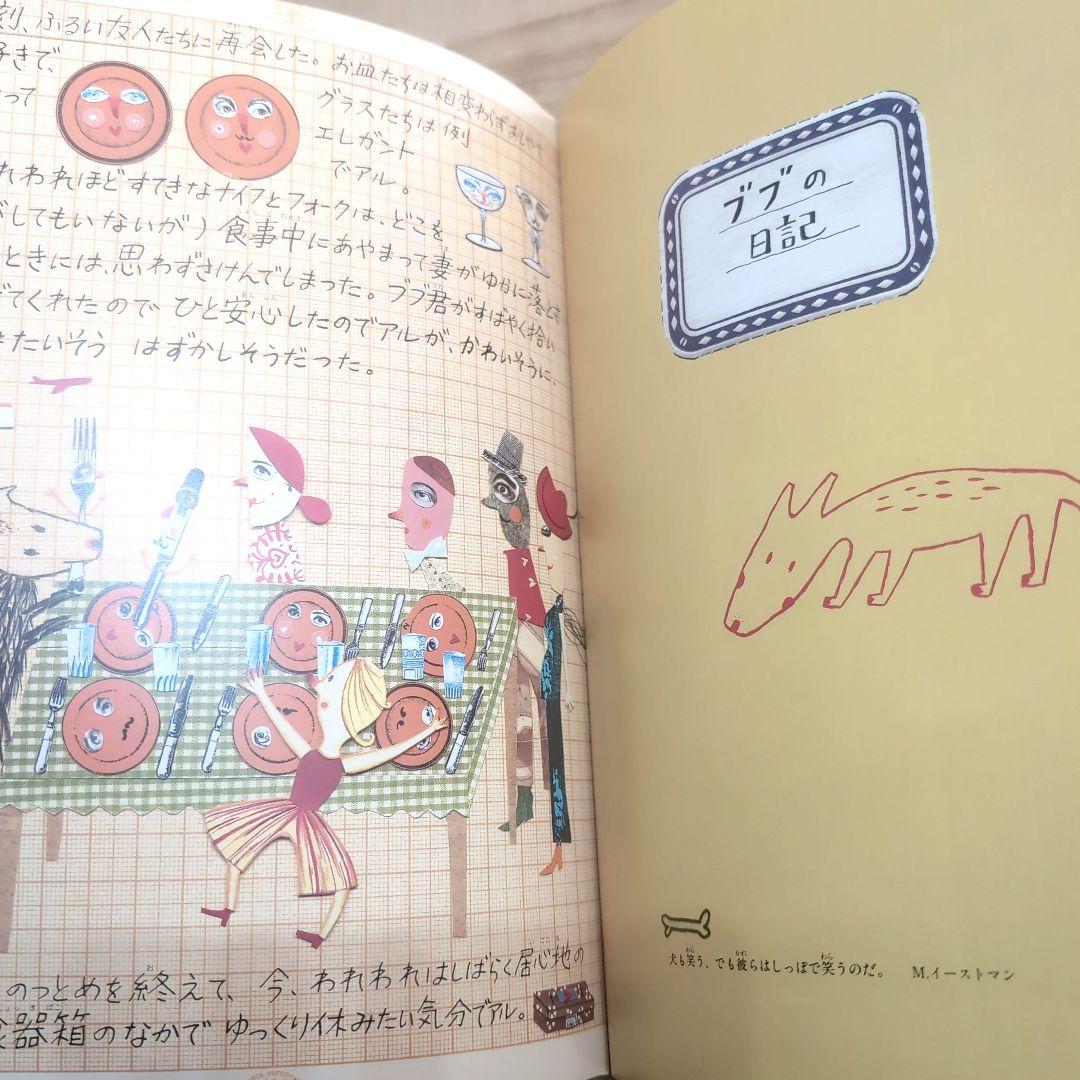 刻、ふるい友人たちに再会した。お皿たちは相変わらずおしゃべ
好きで、
って
グラスたちは例
エレガント
でアル。
れわれほどすてきなナイフとフォークは、どこを
がしてもいないが）食事中にあやまって妻がゆかに落と
ときには、思わずさけんでしまった。ブブ君がすばやく拾い
げてくれたので、ひと安心したのでアルが、かわいそうに、
たいそう はずかしそうだった。
のつとめを終えて、今、われわれはしばらく居心地の
食器箱のなかで ゆっくり休みたい気分でアル。
ブブの
日記
犬も笑う、でも彼らはしっぽで笑うのだ。 M.イーストマン